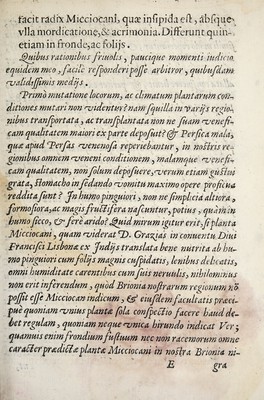 facit radix Micciocani, quæ insipida est, absque
vlla mordicatione, & acrimonia. Differunt quin-
etiam in fronde, ac folijs.
Quibus rationibus friuolis, paucique momenti iudicio
equidem meo, facilè responderi posse arbitror, quibusdam
validissimis medijs.
Primò mutatione locorum, ac climatum plantarum con-
ditiones mutari non videntur? nam squilla in varijs regio-
nibus transportata, ac transplantata non ne suam venefi-
cam qualitatem maiori ex parte deposuit? & Persica mala,
quæ apud Persas venenosa reperiebantur, in nostris re-
gionibus omnem veneni conditionem, malamque venefi-
cam qualitatem, non solum deposuere, verum etiam gustus
grata, stomacho in sedando vomitu maximo opere proficua
reddita sunt? In humo pinguiori, non ne simplicia altiora,
formosiora, ac magis fructifera nascuntur, potius, quàm in
humo sicco, & ferè arido? Quid mirum igitur erit, si planta
Micciocani, quam viderat D. Grazias in conuentu Diui
Francisci Lisbonæ ex Indijs translata bene nutrita ab hu-
mo pinguiori cum folijs magnis cuspidatis, lenibus delicatis,
omni humiditate carentibus cum suis neruulis, nihilominus
non erit inferendum, quod Brionia nostrarum regionum nõ
possit esse Micciocan indicum, & eiusdem facultatis præci-
puè quoniam vnius plantæ sola conspectio facere haud de-
bet regulam, quoniam neque vnica hirundo indicat Ver;
quamuis enim frondium fustium nec non racemorum omne
caracter prædictæ plantæ Micciocani in nostra Brionia ni-
E gra